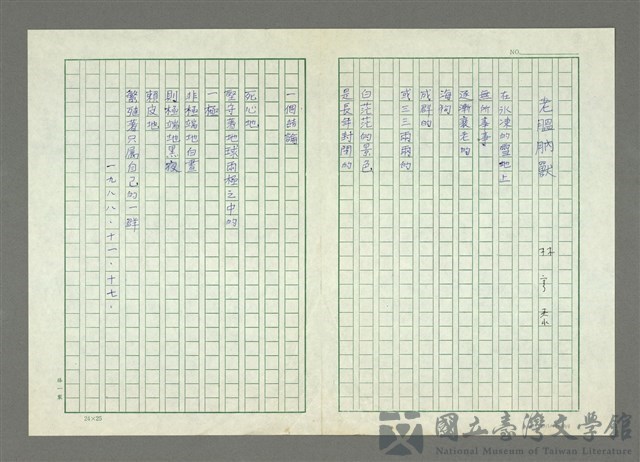 NO.
老膃肭獸
林亨泰
在氷凍的雪地上
無所事事
逐漸衰老的
海狗
成群的
或三三兩兩的
白茫茫的景色
是長年封閉的
一個
死心地
堅守著地球兩極之中的
一極
非極端地白晝
則極端地黑夜
賴皮地
繁殖著只屬自己的一群
一九八八．十一．十七．
24×25
國立臺灣文學館
National Museum of Taiwan Literature